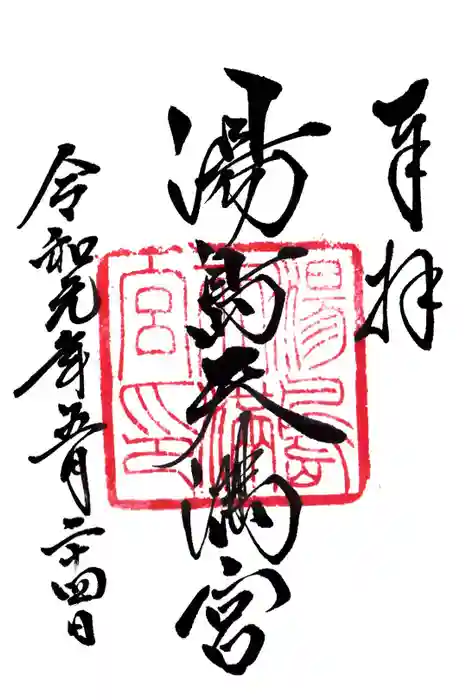 奉拝
湯島天満宮
湯島天満宮印
令和元年五月二十四日